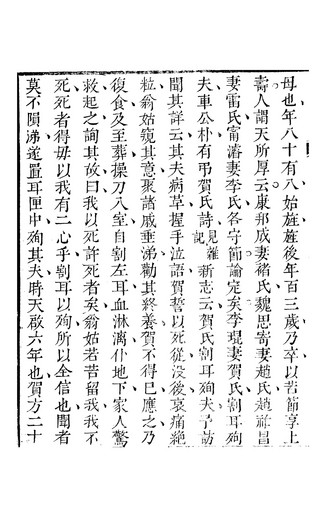 母也年八十有八始旌旌後年百三歲乃卒以苦節享上
壽人謂天所厚云康邦成妻褚氏魏思寄妻趙氏趙祥昌
妻雷氏甯濬妻李氏各守節論定矣李琨妻賀氏割耳殉
夫車公朴有弔賀氏詩見雜記新志云賀氏割耳殉夫予訪
聞其詳云其夫病草握手泣語賀誓以死從没後哀痛絕
粒翁姑窺其意聚諸戚垂涕勸其終養賀不得已應之乃
復食及至葬操刀入室自割左耳血淋漓仆地下家人驚
救起之詢其故曰我以死許死者矣翁姑若苦留我我不
死死者得毋以我有二心乎割耳以殉所以全信也聞者
莫不隕涕遂置耳匣中殉其夫時天啟六年也賀方二十